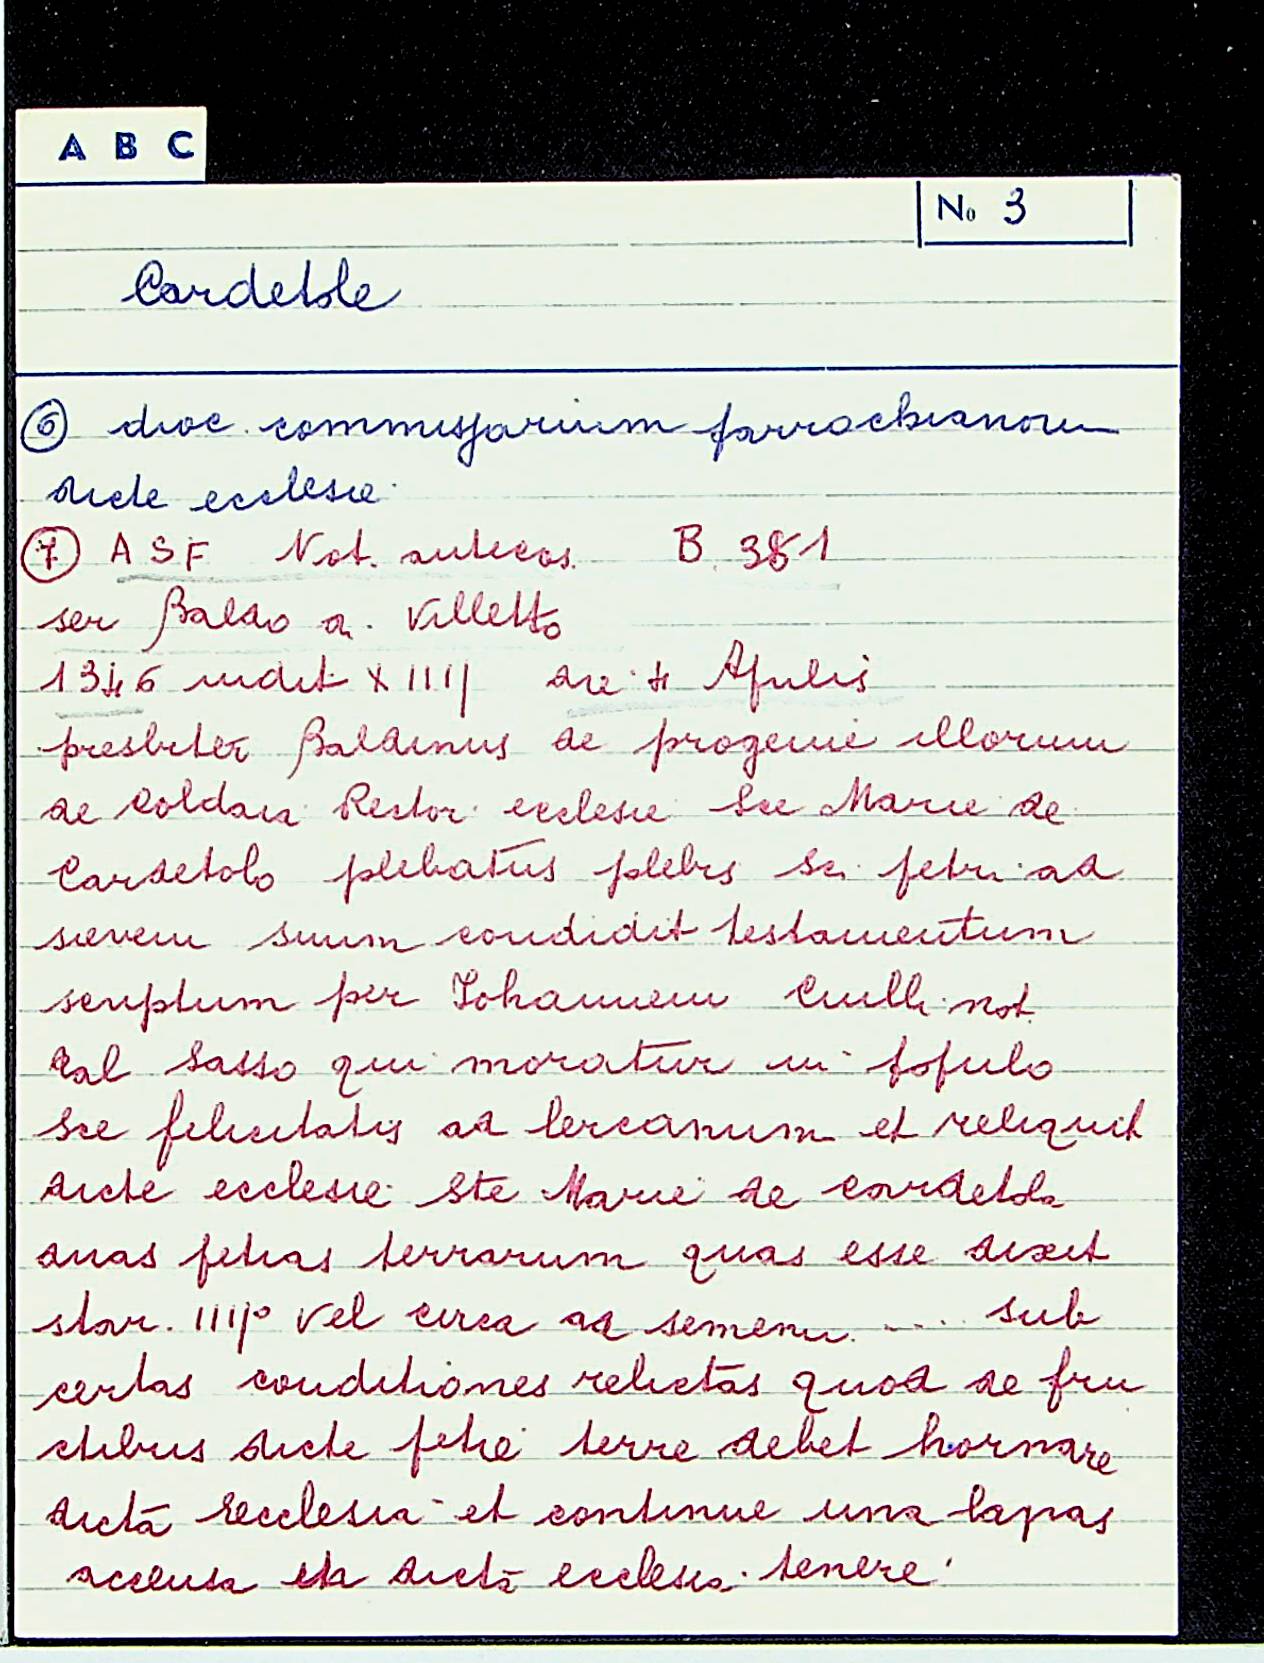 A B C
No 3
Cardetole
⑥ dioc commissarium parrochianorum
dicte ecclesie
⑦ A S F Not. antecos. B. 381
ser Baldo a. Villetto
1346 indit XIIIJ die 4 Aprilis
presbiter Baldinus de progenie illorum
de Coldaia Rector ecclesie Sce Marie de
Cardetolo plebatus plebis Sci petri ad
sievem suum condidit testamentum
scriptum per Johannem Ciulli not
dal Sasso qui moratur in popolo
Sce felicitatis ad lercanum et reliquit
dicte ecclesie Ste Marie de cardetola
duas petias terrarum quas esse dixit
star. IIIJº vel circa ad semenu. .... sub
certas conditiones relictas quod de fru
ctibus dicte petie terre debet hornare
dictā ecclesia et continue una lapas
accensa in dictā ecclesia tenere